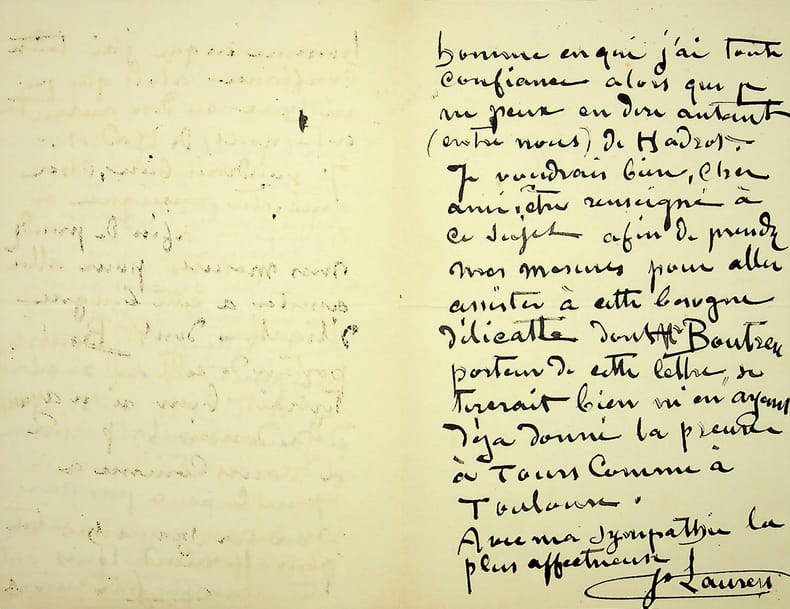 homme en qui j'ai toute
confiance alors que je
ne peux en dire autant
(entre nous) de Hadrot.
Je voudrais bien, cher
ami, être renseigné à
ce sujet afin de prendre
mes mesures pour aller
assister à cette besogne
délicatte dont Mr Boutreu
porteur de cette lettre, se
tirerait bien m'en ayant
déja donné la preuve
à Tours Comme à
Toulouse.
Avec ma Sympathie la
plus affectueuse
Laurens